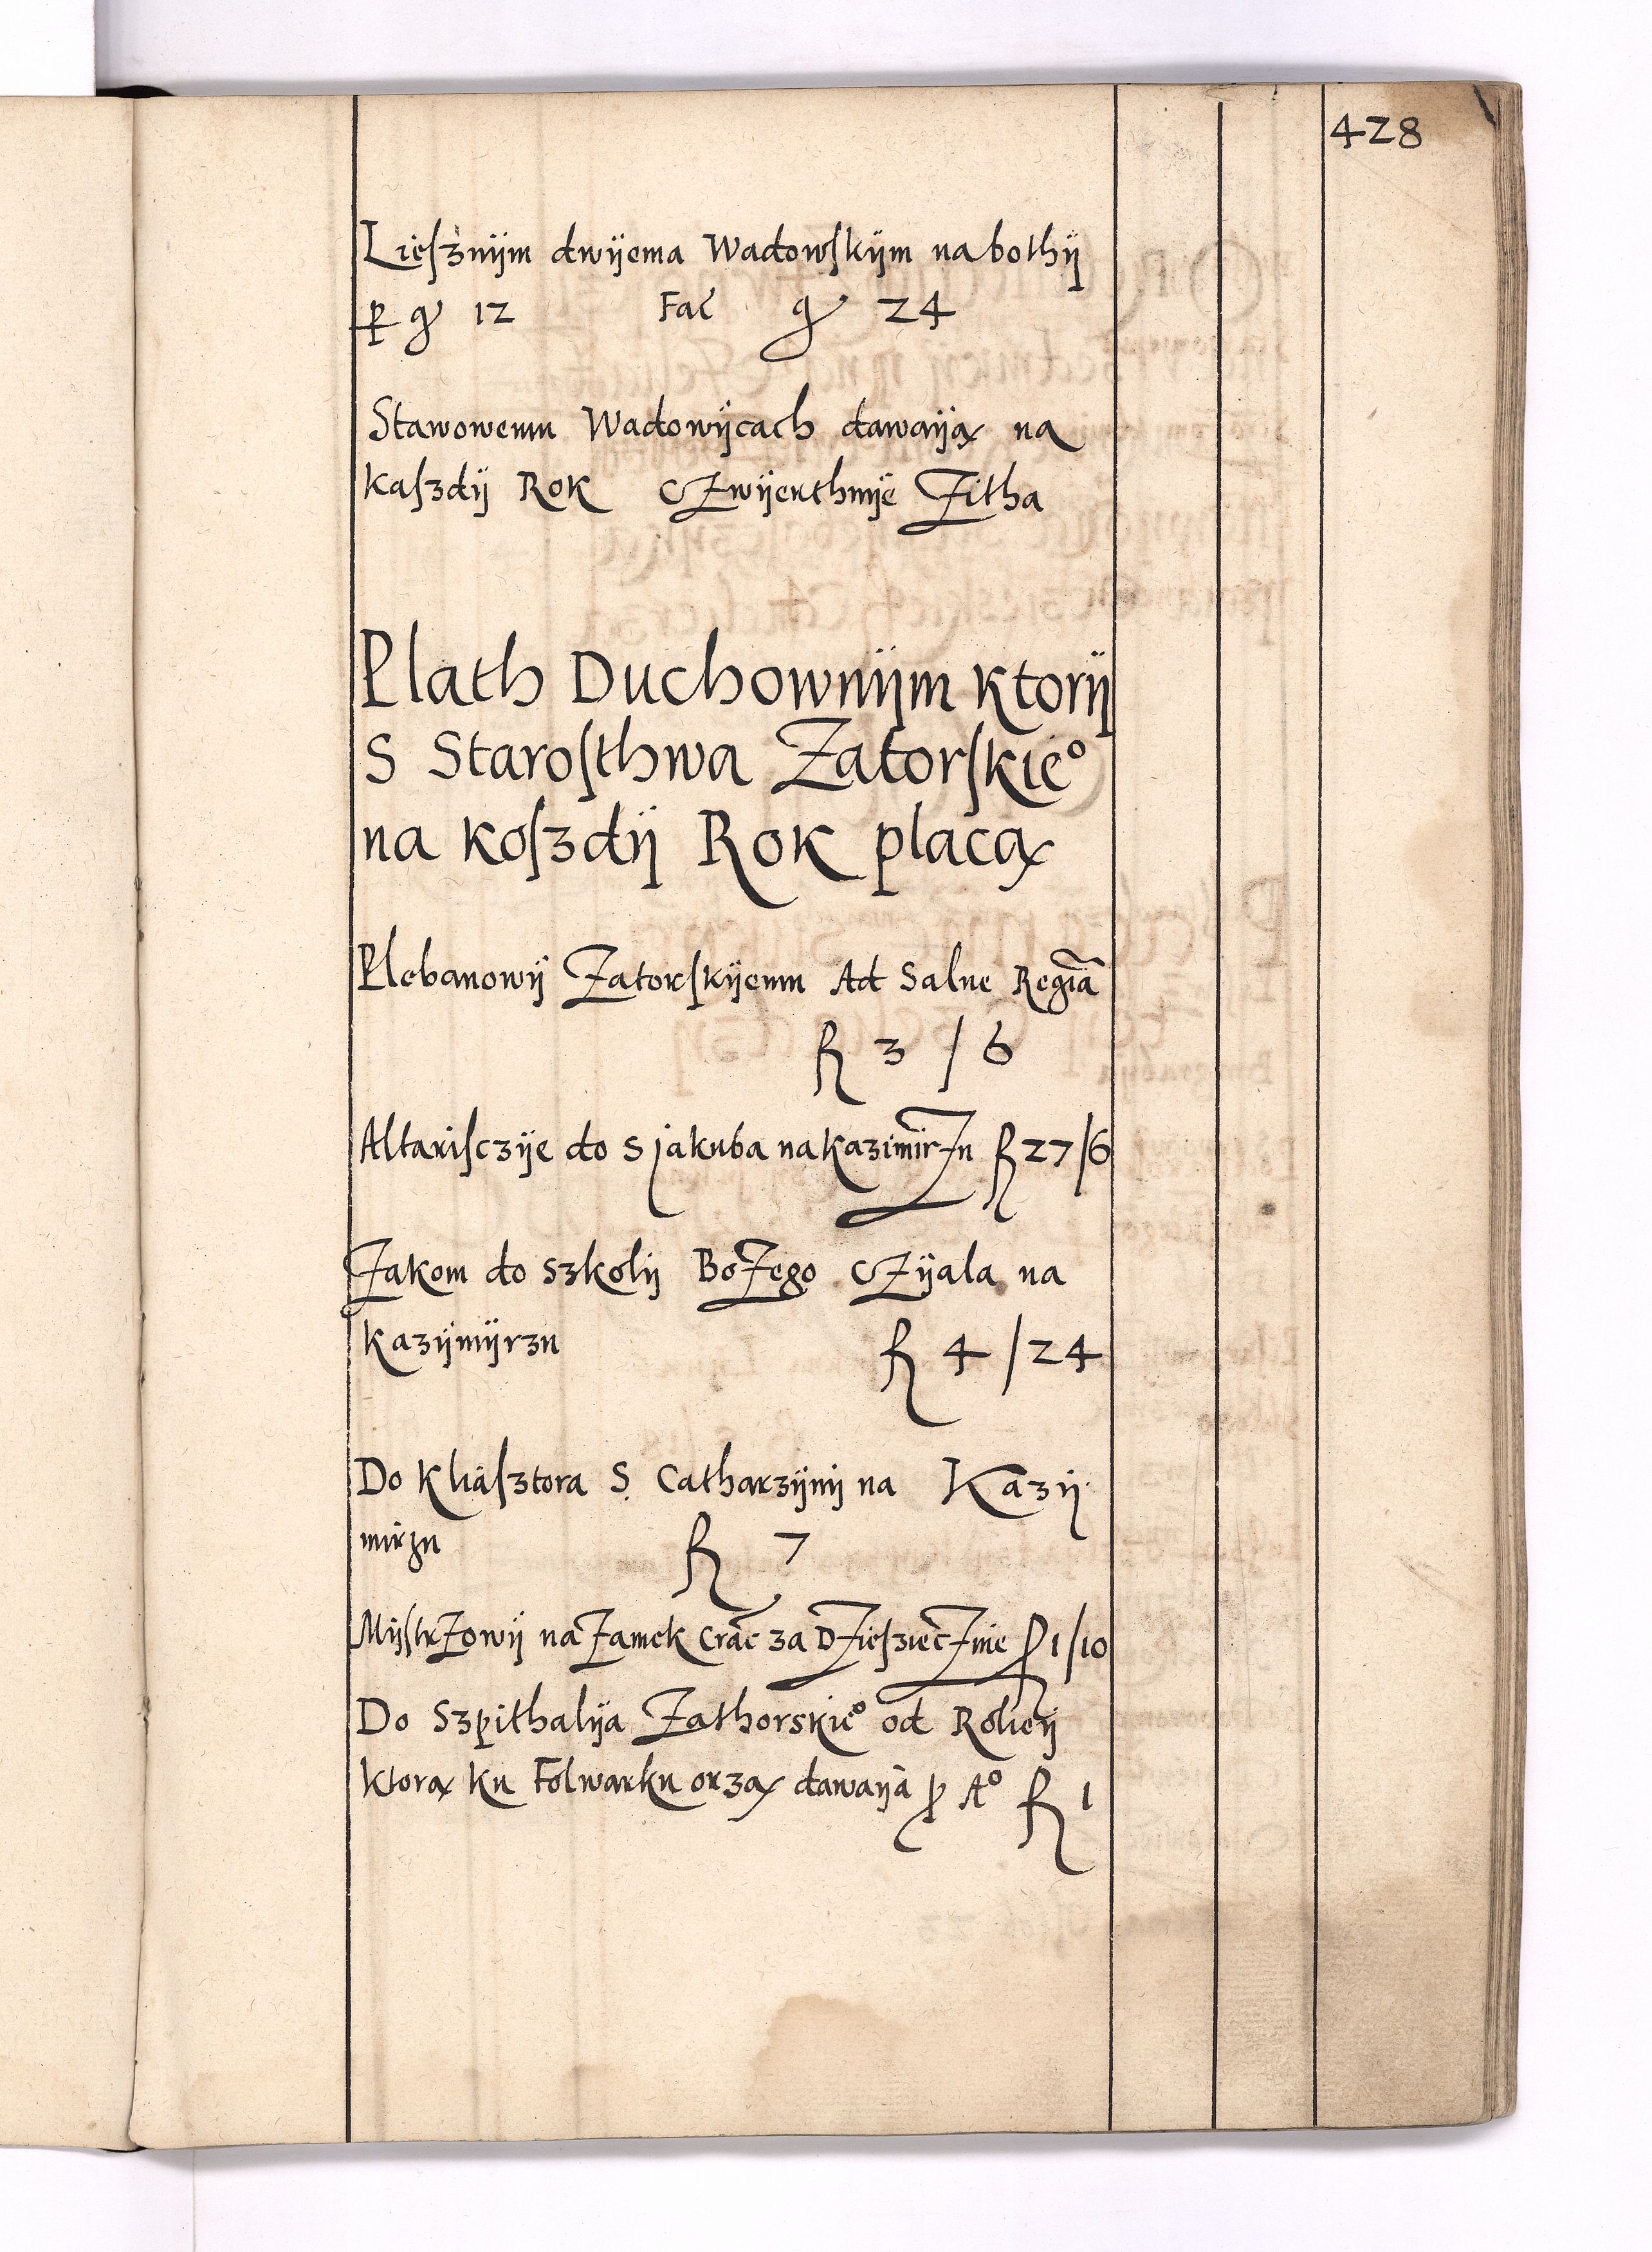 428
Lieſznÿm dwÿema Wadowſkÿm na bothÿ
ꝑ gͬ 12 Fac̃ gͬ 24
Stawowemu Wadowÿcach dawaÿą na
kaſzdÿ Rok cZwÿerthnÿe Zitha
Plath Duchownÿm ktorÿ
S Staroſthwa Zatorſkieº
na koſzdÿ Rok placą
Plebanowÿ Zatorſkÿemu Ad Salue Regiã
fl 3 / 6
Altariſczÿe do S jakuba na kazimirZu fl 27/6
Zakom do szkolÿ BoZego cZÿala na
kazÿmÿrzu fl 4 / 24
Do Kliaſztora S. Catharzÿnÿ na Kazÿ
mirzu fl 7
MÿſtrZowÿ na Zamek Crac̃ za DZieſziecZine fl 1/10
Do Szpithalÿa Zathorskieº od Roliey
ktorą ku Folwarku orzą dawaÿa ꝑ Aº fl 1